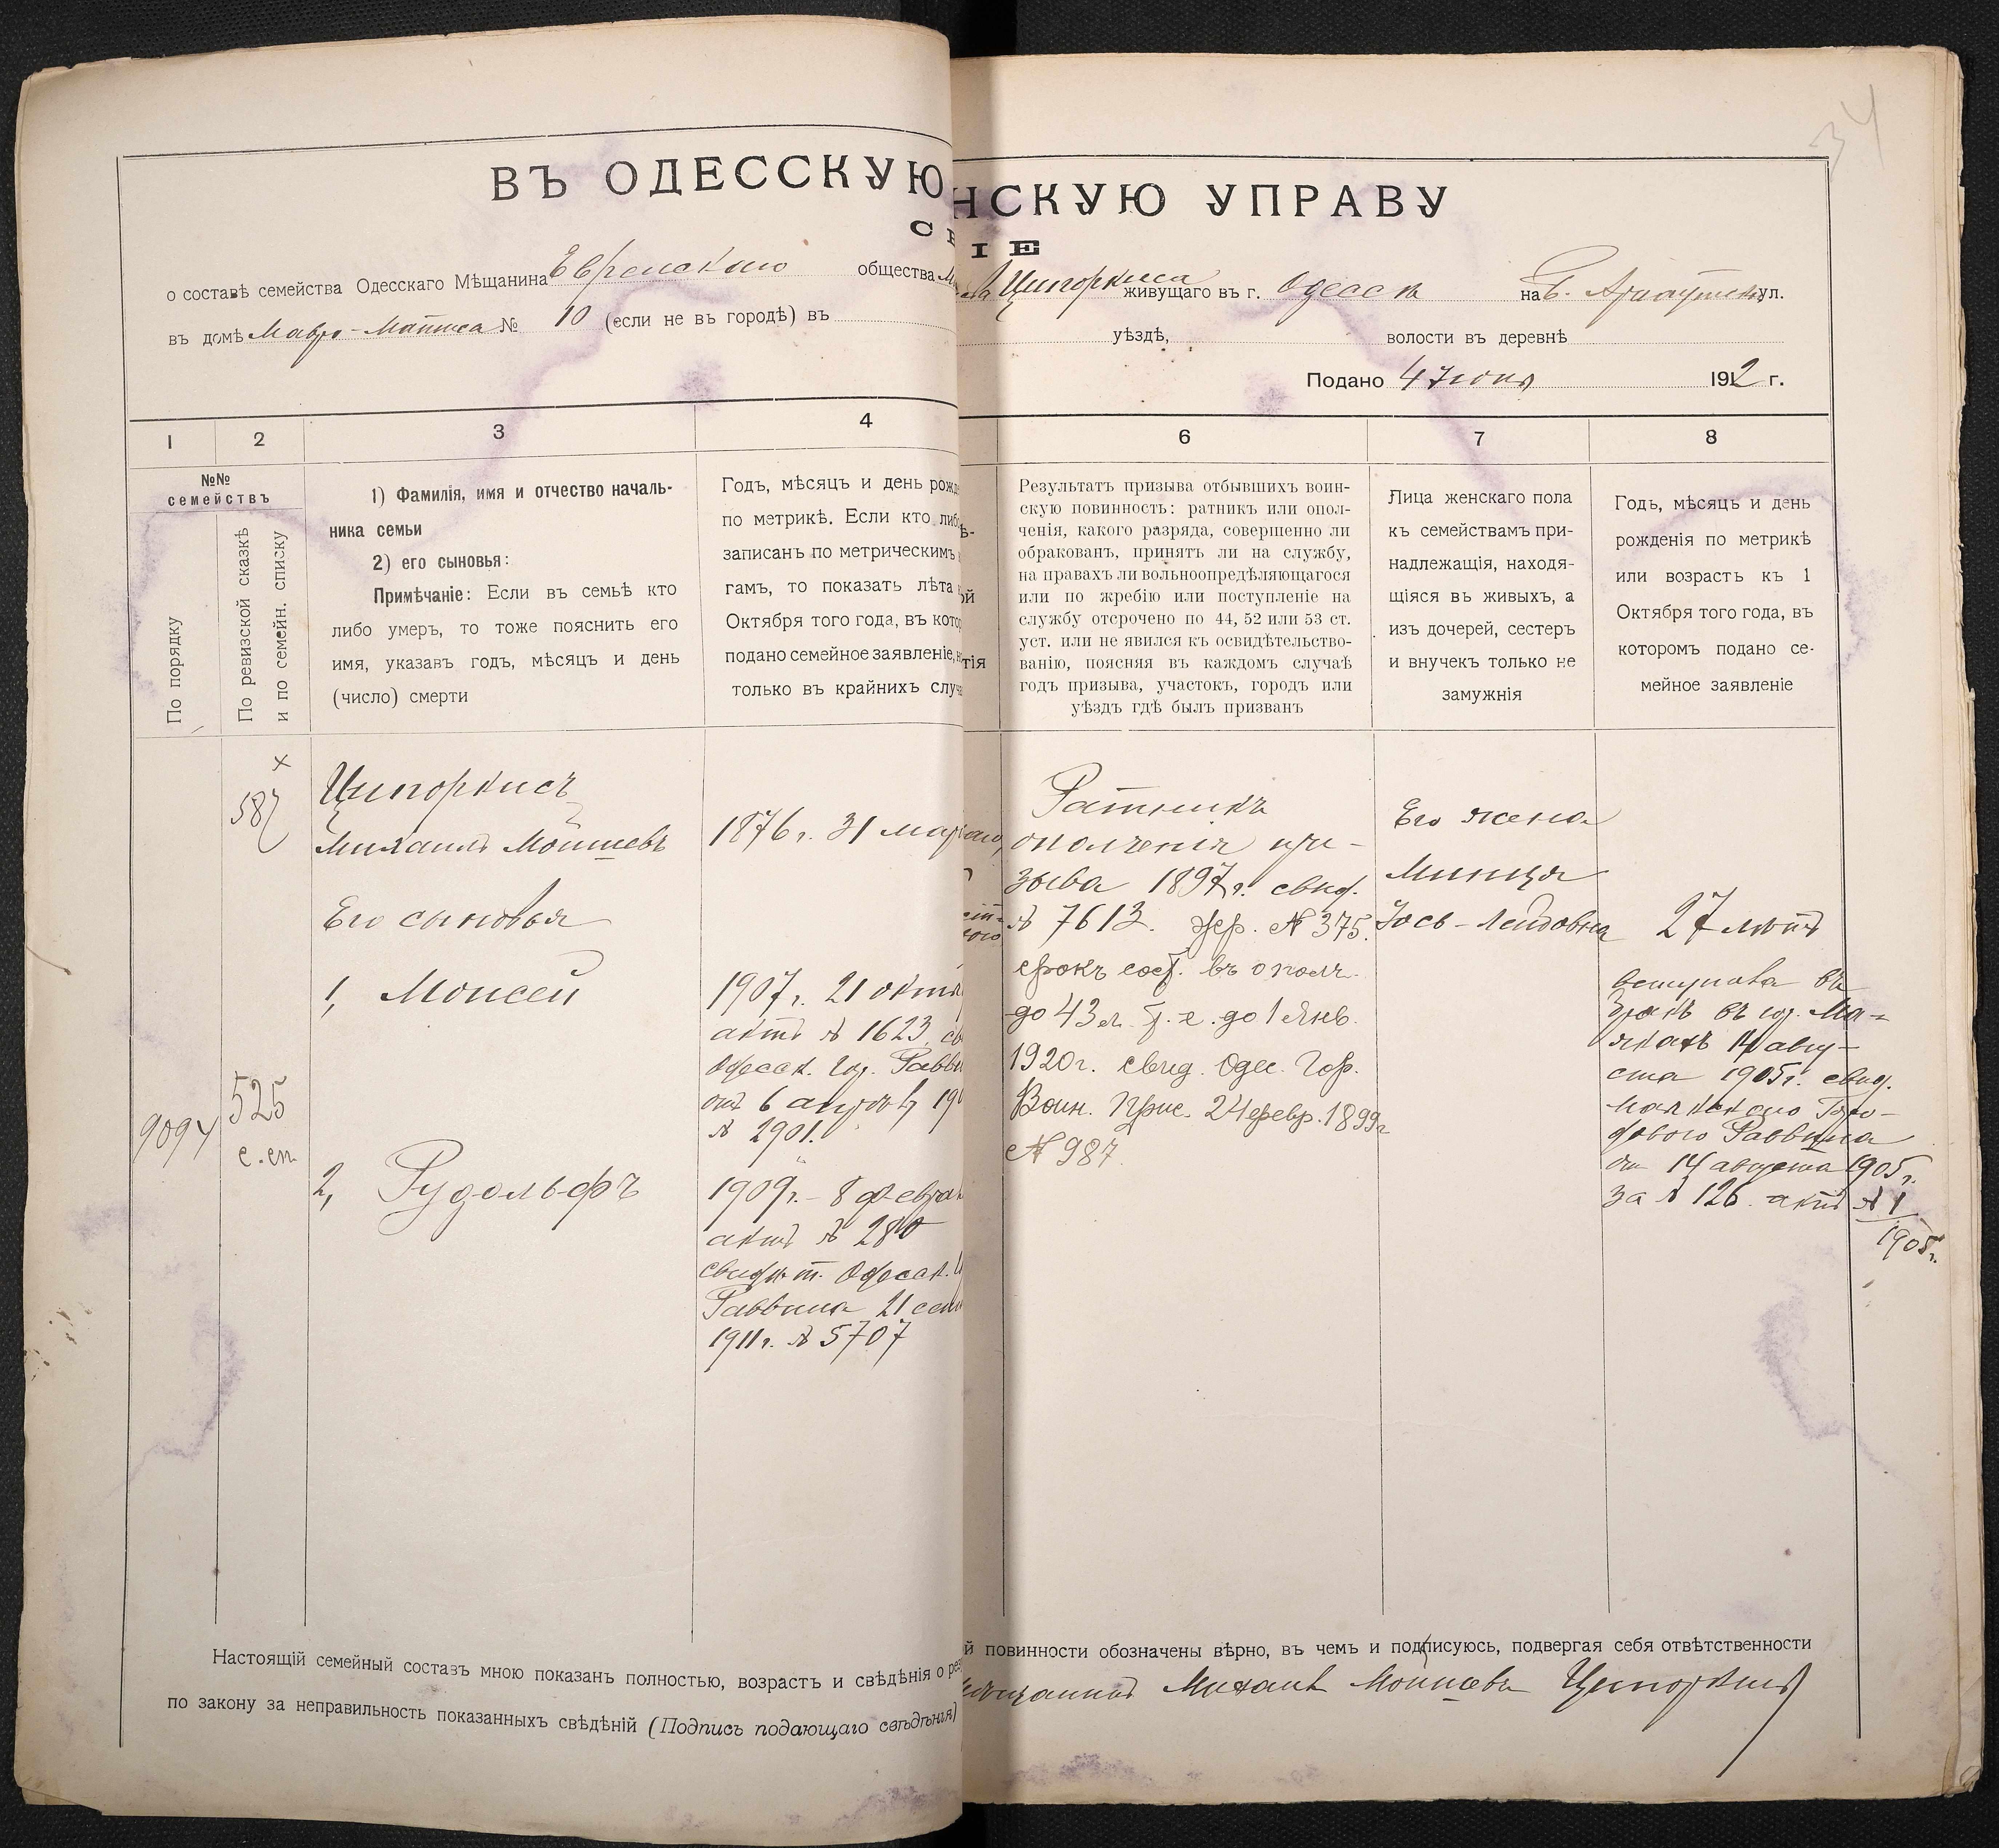 34
ВЪ ОДЕССКУЮ
НСКУЮ УПРАВУ
ІЕ
о составѣ семейства Одесскаго Мѣщанина Еврейскаго общества
Ципоркиса живущаго въ г. Одесса на Б. Арнаутской ул.
въ домѣ Мавро-Матиса № 10 (если не въ городѣ) въ
уѣздѣ, волости въ деревнѣ
Подано 4 Іюня 1912 г.
1 2 3 4
6 7 8
№№
семействъ
По порядку
По ревизской сказкѣ
и по семейн. списку
1) Фамилія, имя и отчество началь-
ника семьи
2) его сыновья:
Примѣчаніе: Если въ семьѣ кто
либо умеръ, то тоже пояснить его
имя, указавъ годъ, мѣсяцъ и день
(число) смерти
Годъ, мѣсяцъ и день рожд
по метрикѣ. Если кто либо
записанъ по метрическимъ
гамъ, то показать лѣта
Октября того года, въ кото
подано семейное заявленіе,
только въ крайнихъ случ
Результатъ призыва отбывшихъ воин-
скую повинность: ратникъ или опол-
ченія, какого разряда, совершенно ли
обракованъ, принятъ ли на службу,
на правахъ ли вольноопредѣляющагося
или по жребію или поступленіе на
службу отсрочено по 44, 52 или 53 ст.
уст. или не явился къ освидѣтельство-
ванію, поясняя въ каждомъ случаѣ
годъ призыва, участокъ, городъ или
уѣздъ гдѣ былъ призванъ
Лица женскаго пола
къ семействамъ при-
надлежащія, находя-
щіяся въ живыхъ, а
изъ дочерей, сестеръ
и внучекъ только не
замужнія
Годъ, мѣсяцъ и день
рожденія по метрикѣ
или возрастъ къ 1
Октября того года, въ
которомъ подано се-
мейное заявленіе
9094
587
525
с. сп.
Ципоркисъ
Михаилъ Мойшевъ
Его сыновья
1, Моисей
2, Рудольфъ
1876 г. 31 мар
1907 г. 21 октя
актъ № 1623
Одесск. Гор. Равви
отъ 6 апрѣля
№ 2901.
1909 г. 8 феврал
актъ № 280
свидѣт. Одесск.
Раввина 21 сент
1911 г. № 5707
Ратникъ
ополченія при-
зыва 1897 г. свид.
№ 7613. жер. № 375.
срокъ сост. въ ополч.
до 43 л. т. е. до 1 Янв.
1920 г. свид. Одес. Гор.
Воин. Прис. 24 февр. 1899 г
№ 987.
Его жена
Минця
Іось-Лейбовна
27 лѣтъ
вступила въ
бракъ въ гор. Ма-
якахъ 14 авгу-
ста 1905 г. свид.
Маякскаго Горо-
дового Раввина
отъ 14 августа 1905 г.
за № 126 актъ № 1
1905 г.
Настоящій семейный составъ мною показанъ полностью, возрастъ и свѣдѣнія о
й повинности обозначены вѣрно, въ чемъ и подписуюсь, подвергая себя отвѣтственности
по закону за неправильность показанныхъ свѣдѣній (Подпись подающаго свѣдѣнія)
Михаилъ Мойшевъ Ципоркисъ